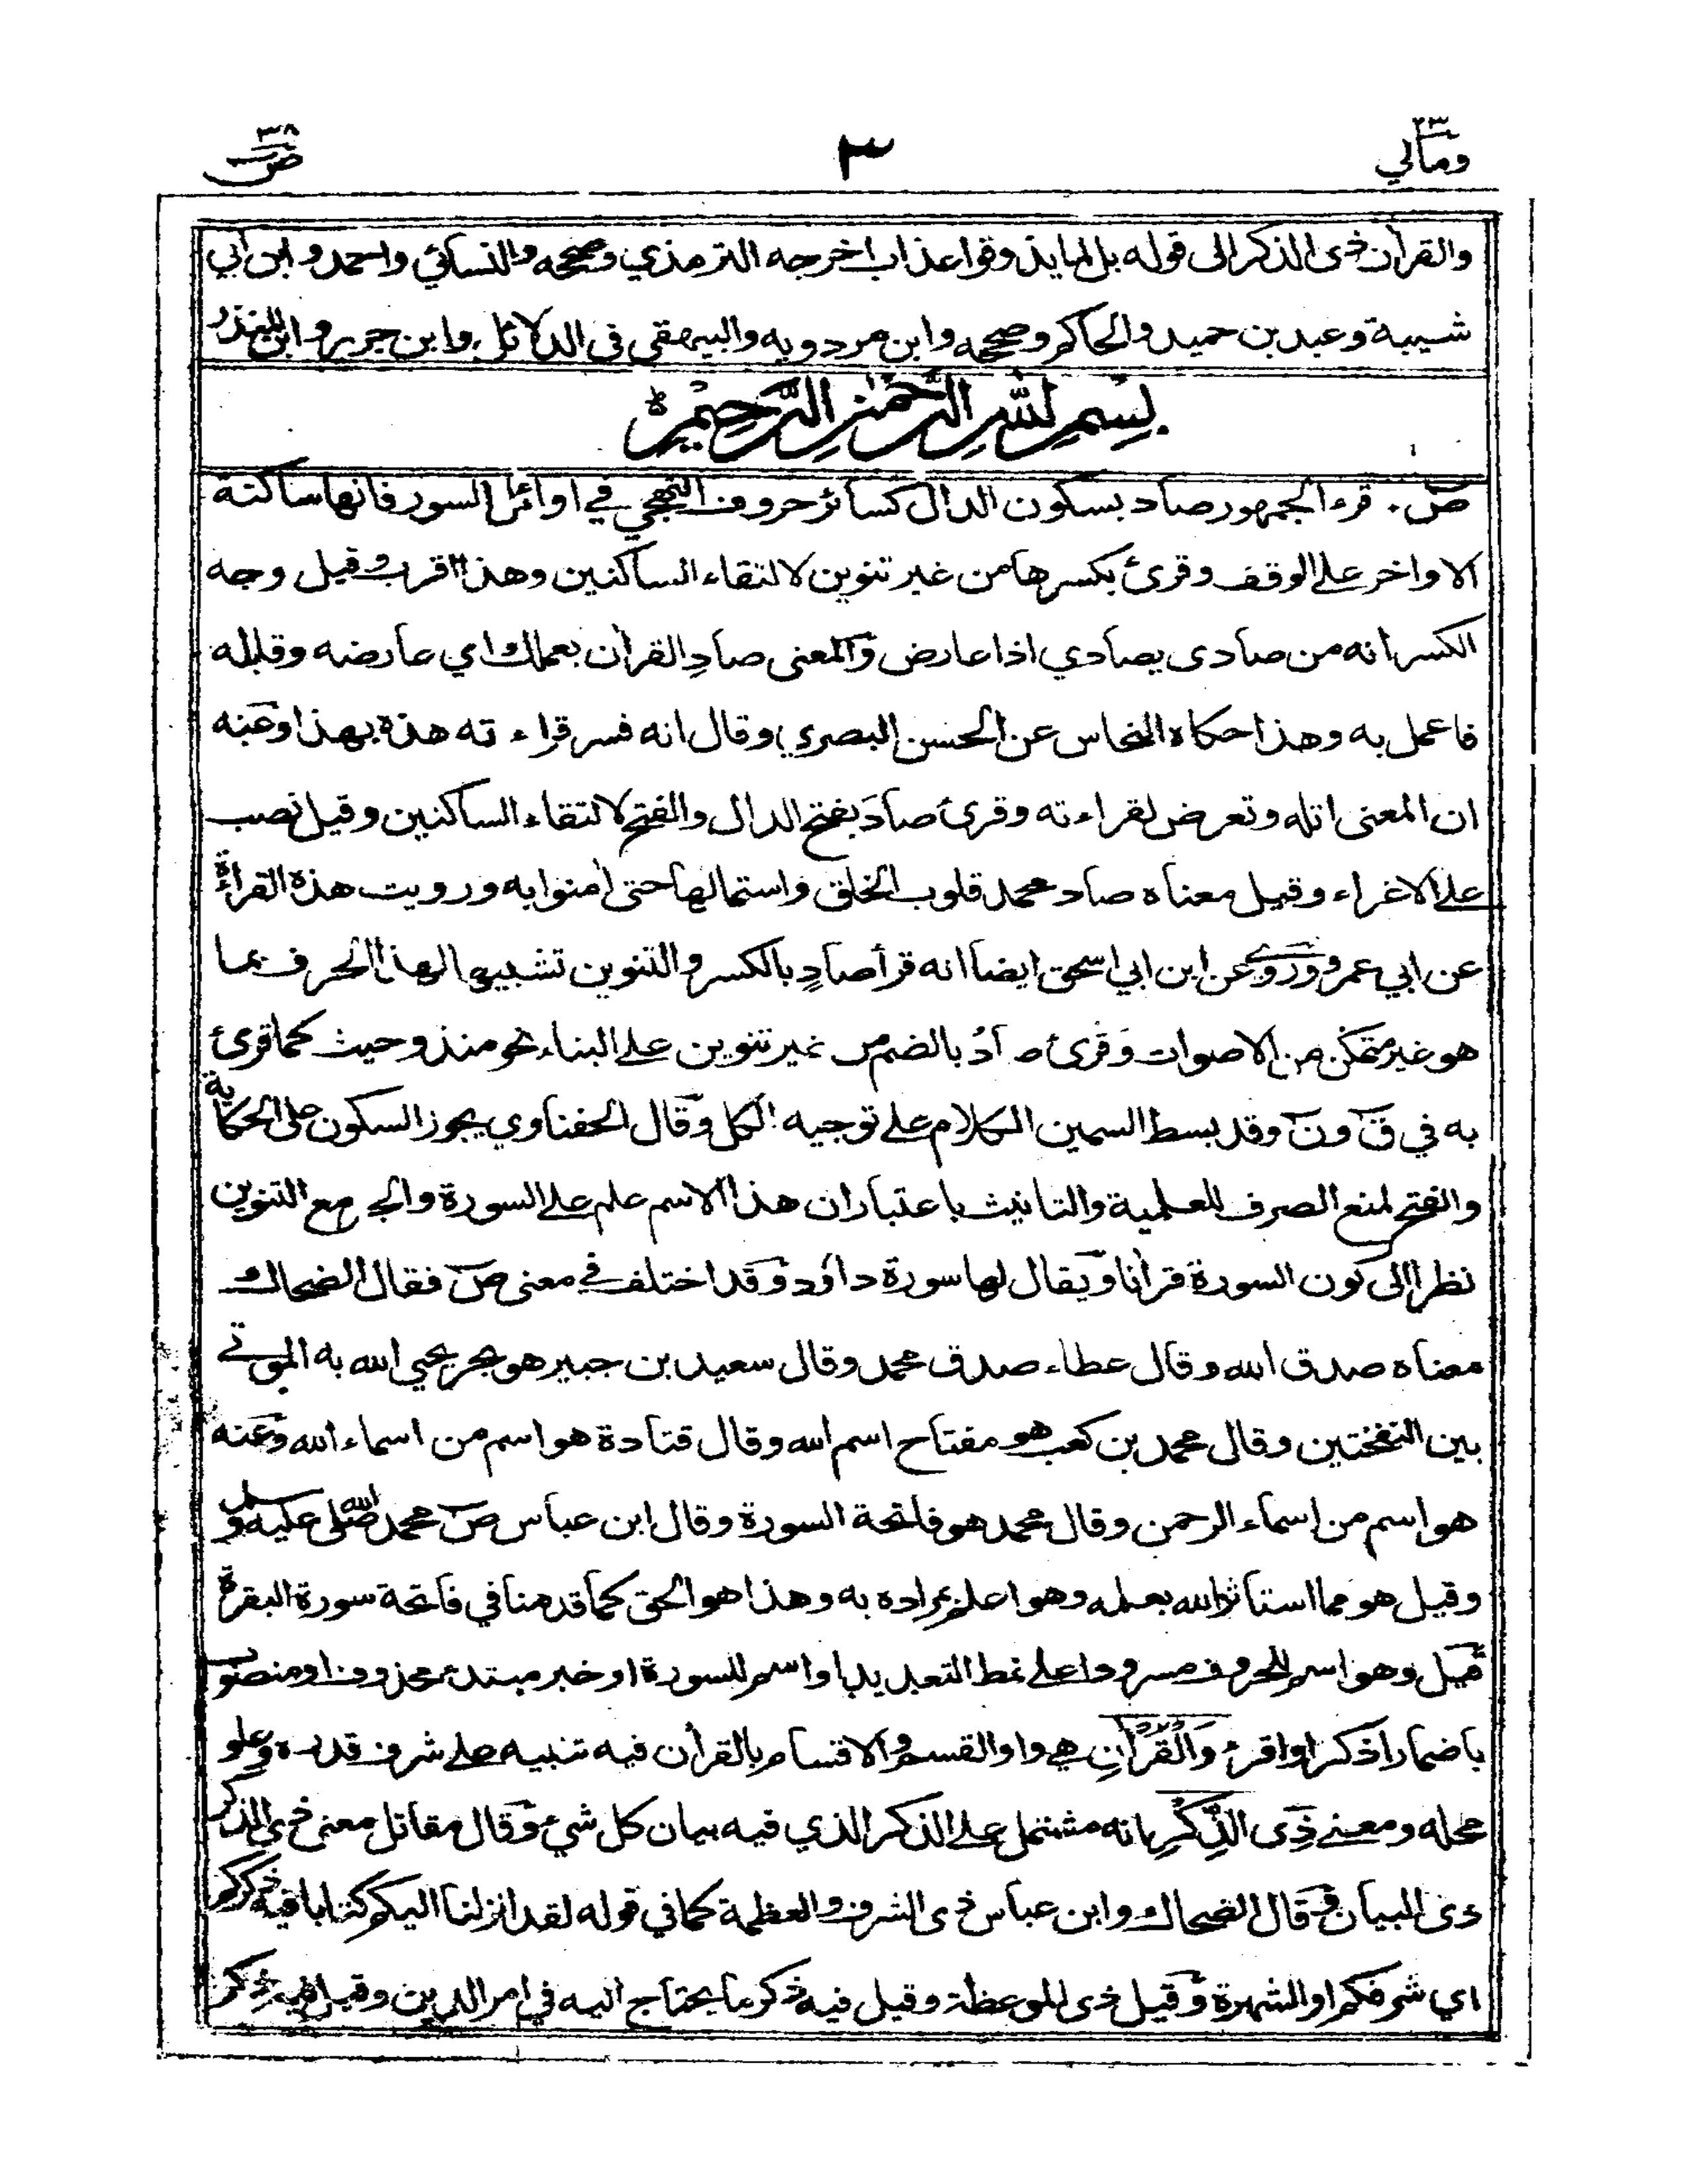 ومالي ٢٣
٣
ص ٣٨
والقراٰن ذى الذكر الى قوله بل لما يذوقوا عذاب اخرجه الترمذي وصححه والنسائي واحمد وابن ابي
شيبة وعبد بن حميد والحاكم وصححه وابن مردويه والبيهقي في الدلائل وابن جرير وابن المنذر
بِسْمِ اللهِ الرَّحْمٰنِ الرَّحِيْمِ
صٓ قرء الجمهور صاد بسكون الدال كسائر حروف التهجي في اوائل السور فانها ساكنة
الاواخر على الوقف وقرئ بكسرها من غير تنوين لالتقاء الساكنين وهذا اقرب وقيل وجه
الكسر انه من صادى يصادي اذا عارض والمعنى صادِ القراٰن بعملك اي عارضه وقابله
فاعمل به وهذا حكاه النحاس عن الحسن البصري وقال انه فسر قراءته هذه بهذا وعنه
ان المعنى اتله وتعرض لقراءته وقرئ صادَ بفتح الدال والفتح لالتقاء الساكنين وقيل نصب
على الاغراء وقيل معناه صاد محمد قلوب الخلق واستمالها حتى اٰمنوا به ورويت هذه القراءة
عن ابي عمرو وروي عن ابن ابي اسحق ايضا انه قرأ صادٍ بالكسر والتنوين تشبيها لهذا الحرف بما
هو غير متمكن من الاصوات وقرئ صادُ بالضم من غير تنوين على البناء نحو منذ وحيث كما قرئ
به في قٓ ونٓ وقد بسط السمين الكلام على توجيه الكل وقال الحفناوي يجوز السكون على الحكاية
والفتح لمنع الصرف للعلمية والتانيث باعتبار ان هذا الاسم علم على السورة والجر مع التنوين
نظرا الى كون السورة قراٰنا ويقال لها سورة داؤد وقد اختلف في معنى صٓ فقال الضحاك
معناه صدق الله وقال عطاء صدق محمد وقال سعيد بن جبير هو بحر يحيي الله به الموتى
بين النفختين وقال محمد بن كعب هو مفتاح اسم الله وقال قتادة هو اسم من اسماء الله وعنه
هو اسم من اسماء الرحمن وقال محمد هو فاتحة السورة وقال ابن عباس صٓ محمد صلى الله عليه وسلم
وقيل هو مما استأثر الله بعلمه وهو اعلم بمراده به وهذا هو الحق كما قدمنا في فاتحة سورة البقرة
قيل وهو اسم للحروف مسرودا على نمط التعديد او اسم للسورة او خبر مبتدء محذوف او منصوب
باضمار اذكر او اقرء وَالْقُرْاٰنِ هي واو القسم والاقسام بالقراٰن فيه تنبيه على شرف قدره وعلو
محله ومعنى ذِى الذِّكْرِ انه مشتمل على الذكر الذي فيه بيان كل شيء وقال مقاتل معنى ذي الذكر
ذى البيان وقال الضحاك وابن عباس ذى الشرف والعظمة كما في قوله لقد انزلنا اليكم كتابا فيه ذكركم
اي شرفكم او الشهرة وقيل ذى الموعظة وقيل فيه ذكر ما يحتاج اليه في امر الدين وقيل فيه ذكر